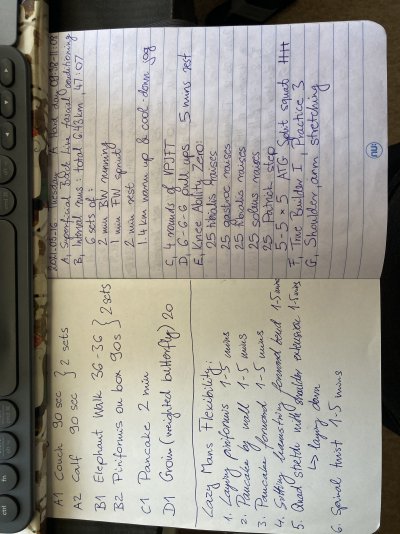 2021-03-16 Tuesday A Hard day 09:18-11:09
A, Superficial Back Line fascial conditioning
B, Interval runs: total 6.43 km, 47:07
6 sets of:
2 min BW running
1 min FW sprint
2 min rest
1.4 km warm up & cool down jog
C, 4 rounds of VPJFT
D, 6-6-6 pull ups 5 mins rest
E, Knee Ability Zero:
25 tibialis raises
25 gastroc raises
25 tibialis raises
25 soleus raises
25 Patrick step
5-5×5 ATG Split squat
F, True Builder I, Practice 3
G, Shoulder, arm stretching
A1 Couch 90 sec } 2 sets
A2 Calf 90 sec
B1 Elephant Walk 36-36 } 2 sets
B2 Piriformis on box 90s
C1 Pancake 2 min
D1 Groin (weighted butterfly) 20
Lazy Mans Flexibility:
1. Laying piriformis 1-5 mins
2. Pancake by wall 1-5 mins
3. Pancake forward 1-5 mins
4. Sitting hamstring forward bend 1-5 mins
5. Quad stretch with shoulder extension 1-5 mins
↳ laying down
6. Spinal twist 1-5 mins